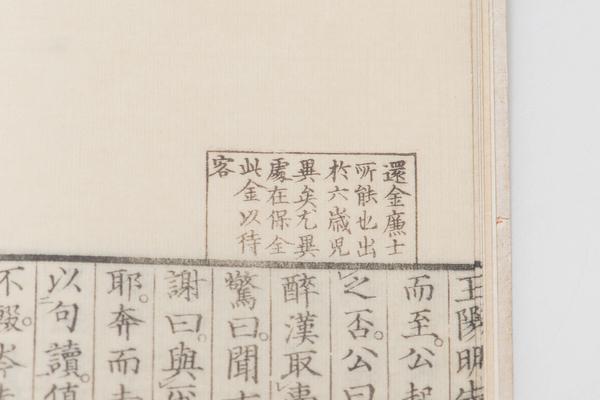 還金廉士
所能也出
於六歳児
異矣尤異
處在保全
此金以待
客
王陽明先
而至。公起
之否。公曰
醉漢取
驚曰。聞
謝曰。與
耶。奔而
以句讀。值
不毀。